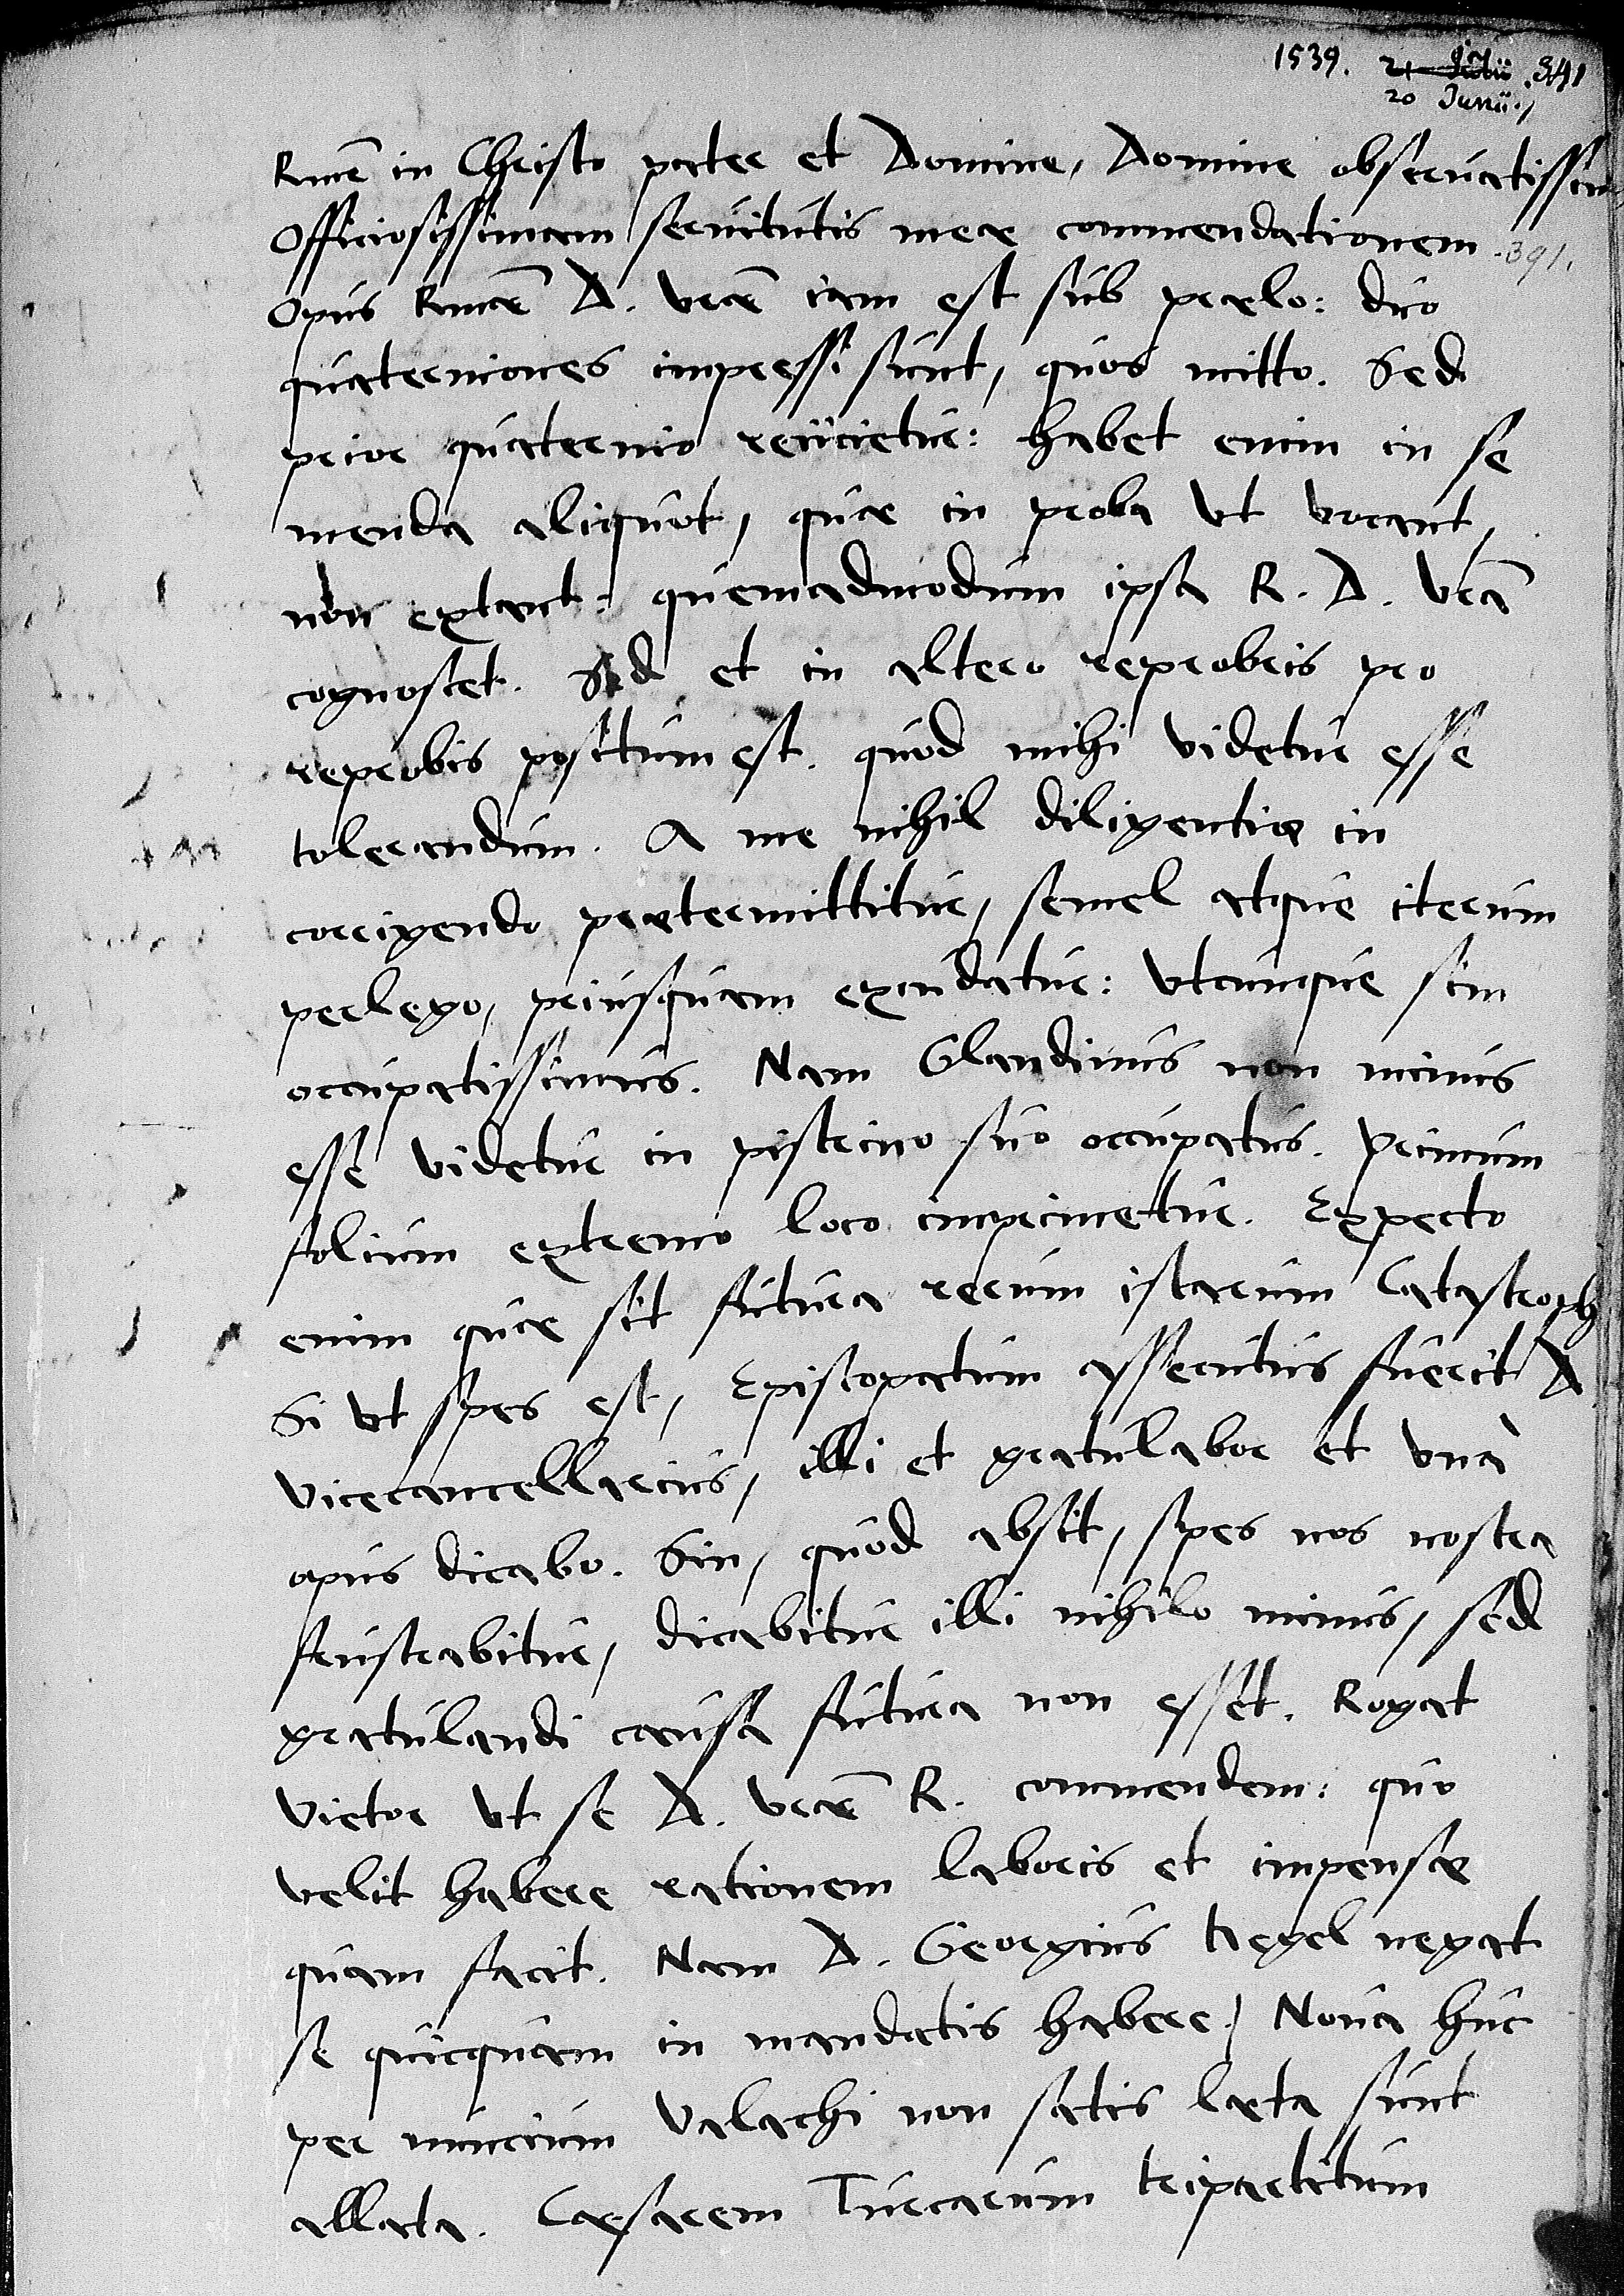 1539. 21 Julii 341
20 Junii
Rme in Christo pater et Domine, Domine observatissim
Officiosissimam servitutis meae commendationem. 391.
Opus Rmae D. vrae iam est sub praelo: duo
quaterniones impressi sunt, quos mitto. Sed
prior quaternio reiicietur: habet enim in se
menda aliquot, quae in proba ut vocant,
non extant: quemadmodum ipsa R. D. vra
cognoscet. Sed et in altero reprobris pro
reprobis positum est. quod mihi videtur esse
tolerandum. A me nihil diligentiae in
corrigendo praetermittitur, semel atque iterum
perlego, priusquam excudatur: utcunque sim
occupatissimus. Nam Glandinus non minus
esse videtur in pistrino suo occupatus. Primum
folium extremo loco imprimetur. Expecto
enim quae sit futura rerum istarum Catastroph
Si ut spes est, Episcopatum assecutus fuerit D
Vicecancellarius, illi et gratulabor et unà
opus dicabo. Sin, quod absit, spes nos nostra
frustrabitur, dicabitur illi nihilo minus, sed
gratulandi causa futura non esset. Rogat
Vietor ut se D. vrae R. commendem: quo
velit habere rationem laboris et impensae
quam facit. Nam D. Georgius Hegel negat
se quicquam in mandatis habere. Nova huc
per nuncium Valachi non satis laeta sunt
allata. Caesarem Turcarum tripartitum